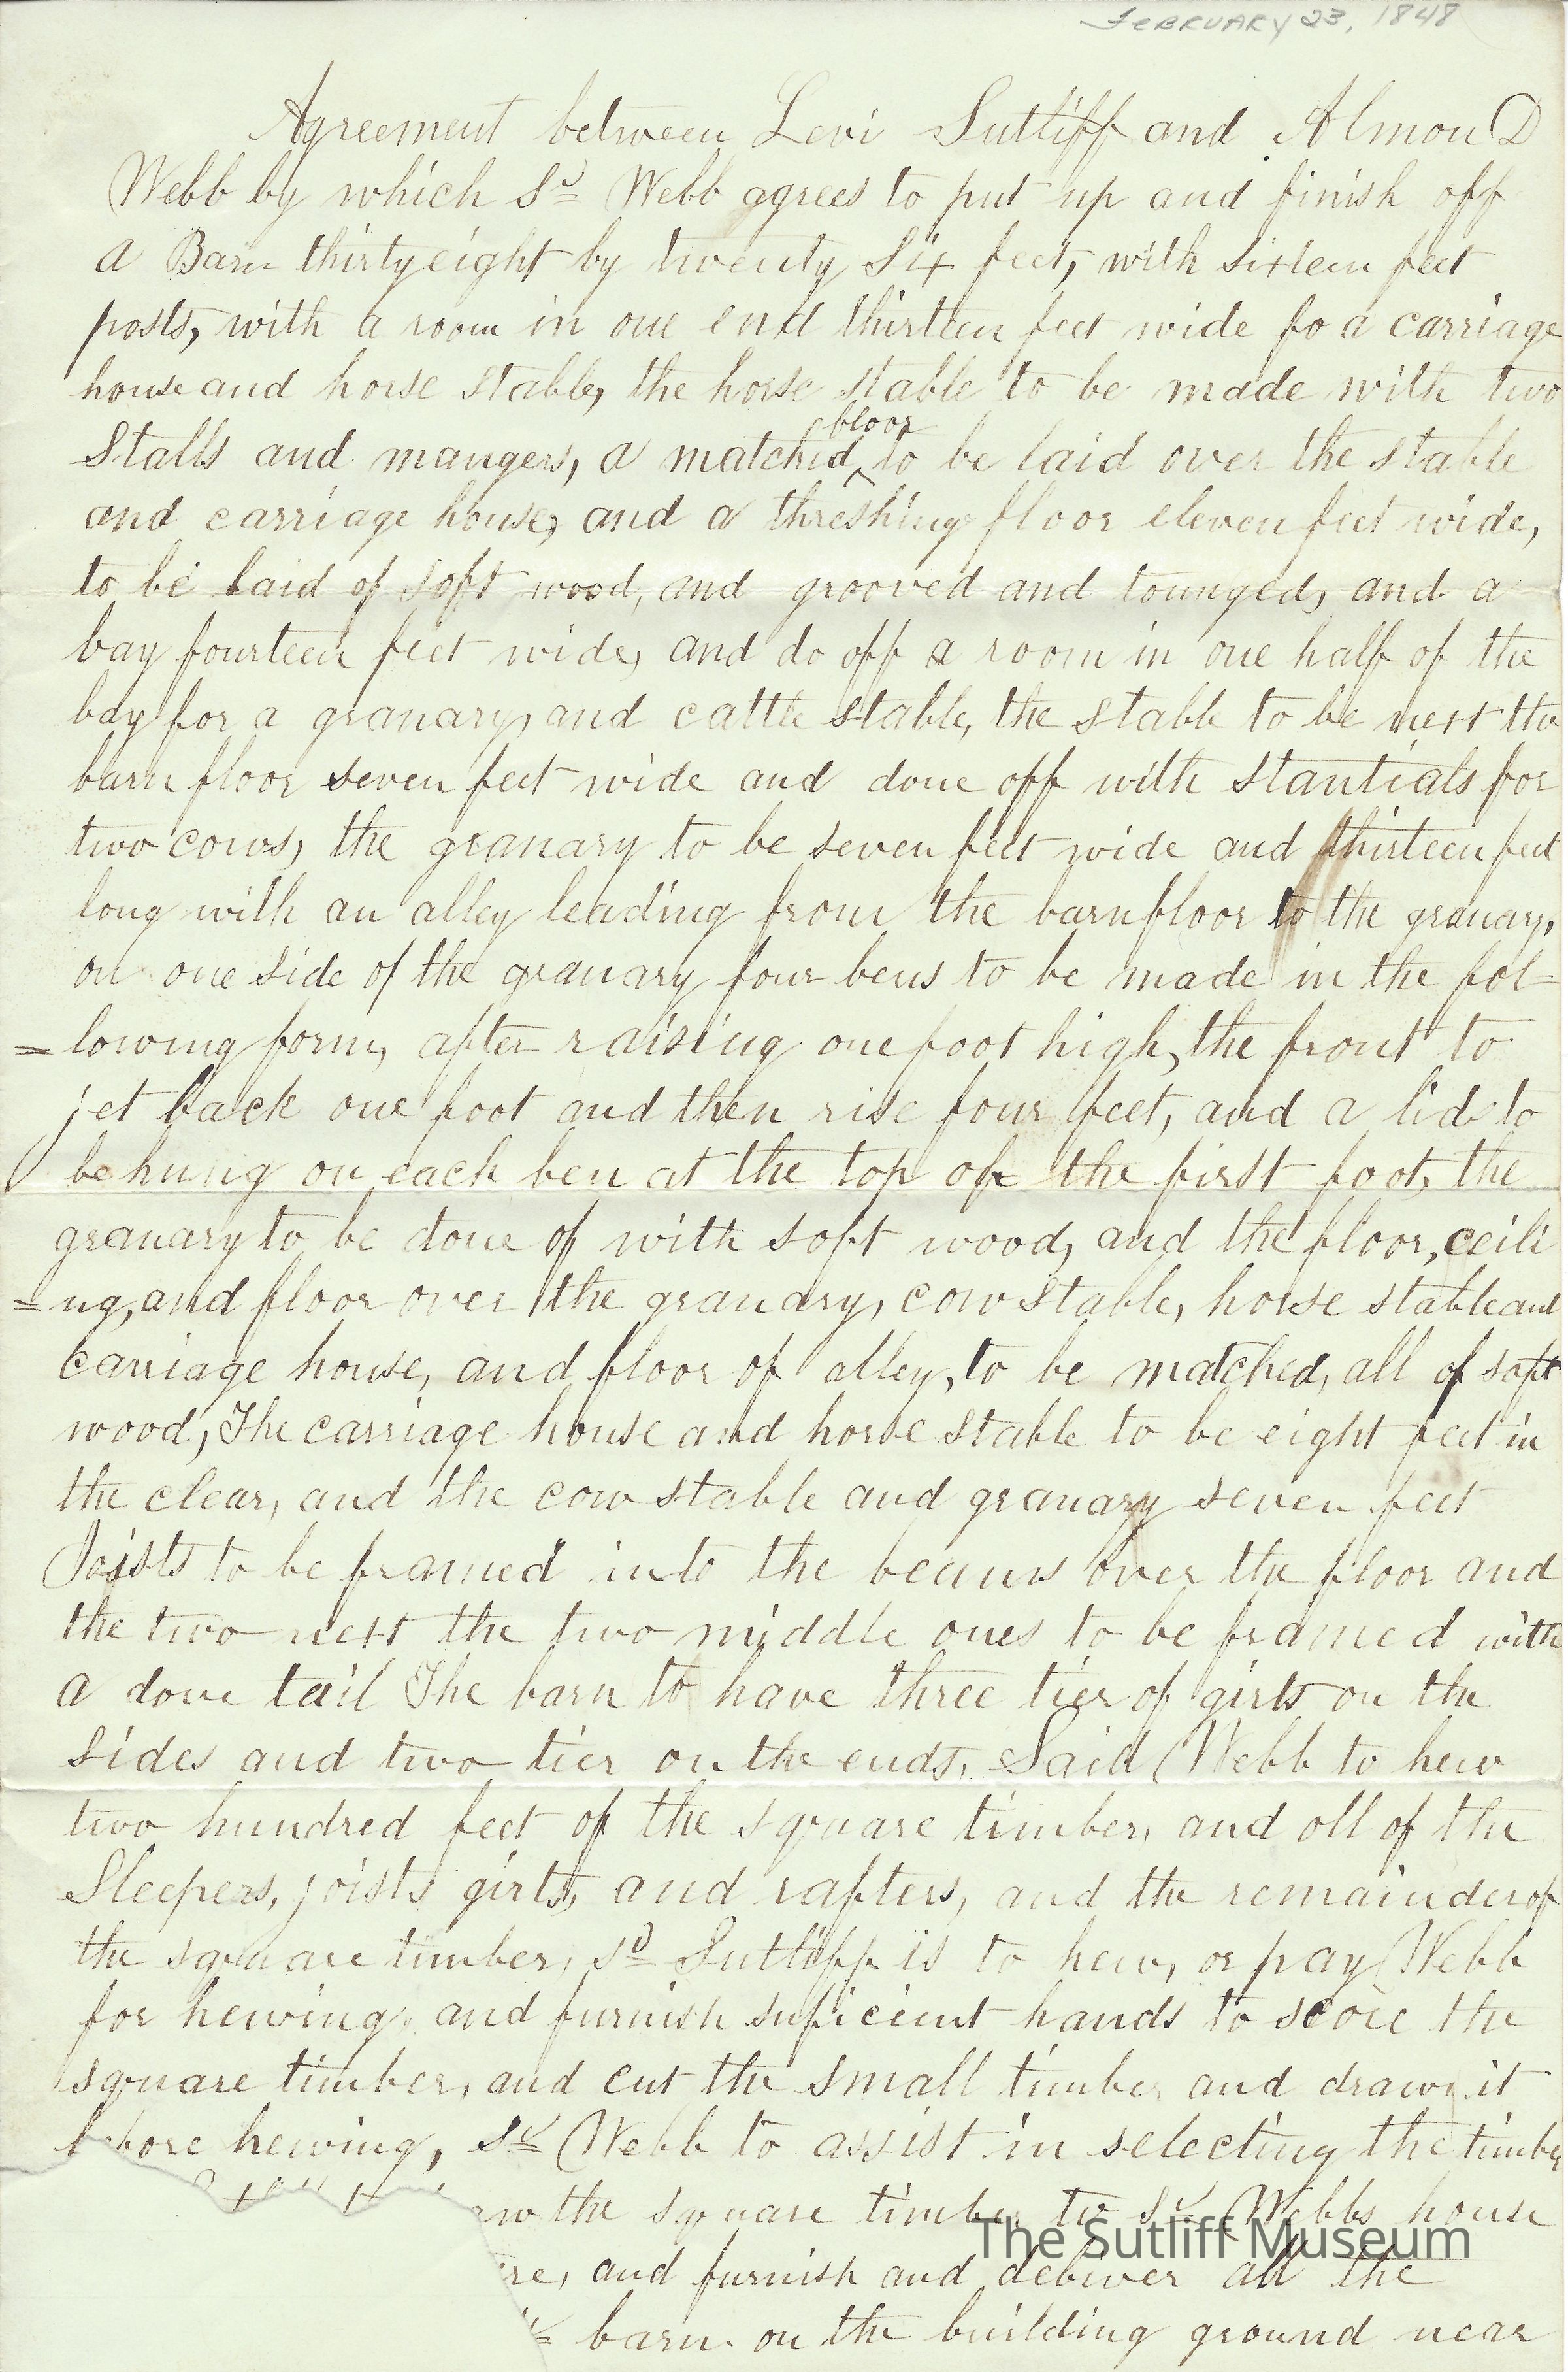 FEBRUARY 23, 1848
Agreement between Levi Sutliff and Almon D
Webb by which Sd Webb agrees to put up and finish off
a Barn thirty eight by twenty Six feet, with sixteen feet
posts, with a room in one end thirteen feet wide fo a carriage
house and horse stable, the horse stable to be made with two
Stalls and mangers, a matched floor to be laid over the stable
and carriage house, and a threshing floor eleven feet wide,
to be laid of soft wood, and grooved and tounged, and a
bay fourteen feet wide, and do off a room in one half of the
bay for a granary, and cattle stable, the stable to be next the
barn floor seven feet wide and done off with stantials for
two cows, the granary to be seven feet wide and thirteen feet
long with an alley leading from the barn floor to the granary,
on one side of the granary four bens to be made in the fol=
=lowing form, after raising one foot high, the front to
jet back one foot and then rise four feet, and a lid to
be hung on each ben at the top of the first foot, the
granary to be done of with soft wood, and the floor, ceili
=ng, and floor over the granary, cow stable, horse stable and
carriage house, and floor of alley, to be matched, all of soft
wood, The carriage house and horse stable to be eight feet in
the clear, and the cow stable and granary seven feet
Joists to be framed into the beams over the floor and
the two next the two middle ones to be framed with
a dove tail The barn to have three tier of girts on the
sides and two tier on the ends, Said Webb to hew
two hundred feet of the square timber, and oll of the
Sleepers, joists girts, and rafters, and the remainder of
the square timber, sd Sutliff is to hew, or pay Webb
for hewing, and furnish suficient hands to score the
square timber, and cut the small timber and draw it
before hewing, sd Webb to assist in selecting the timber
the square timber to sd Webbs house
and furnish and deliver all the
barn on the building ground near
The Sutliff Museum